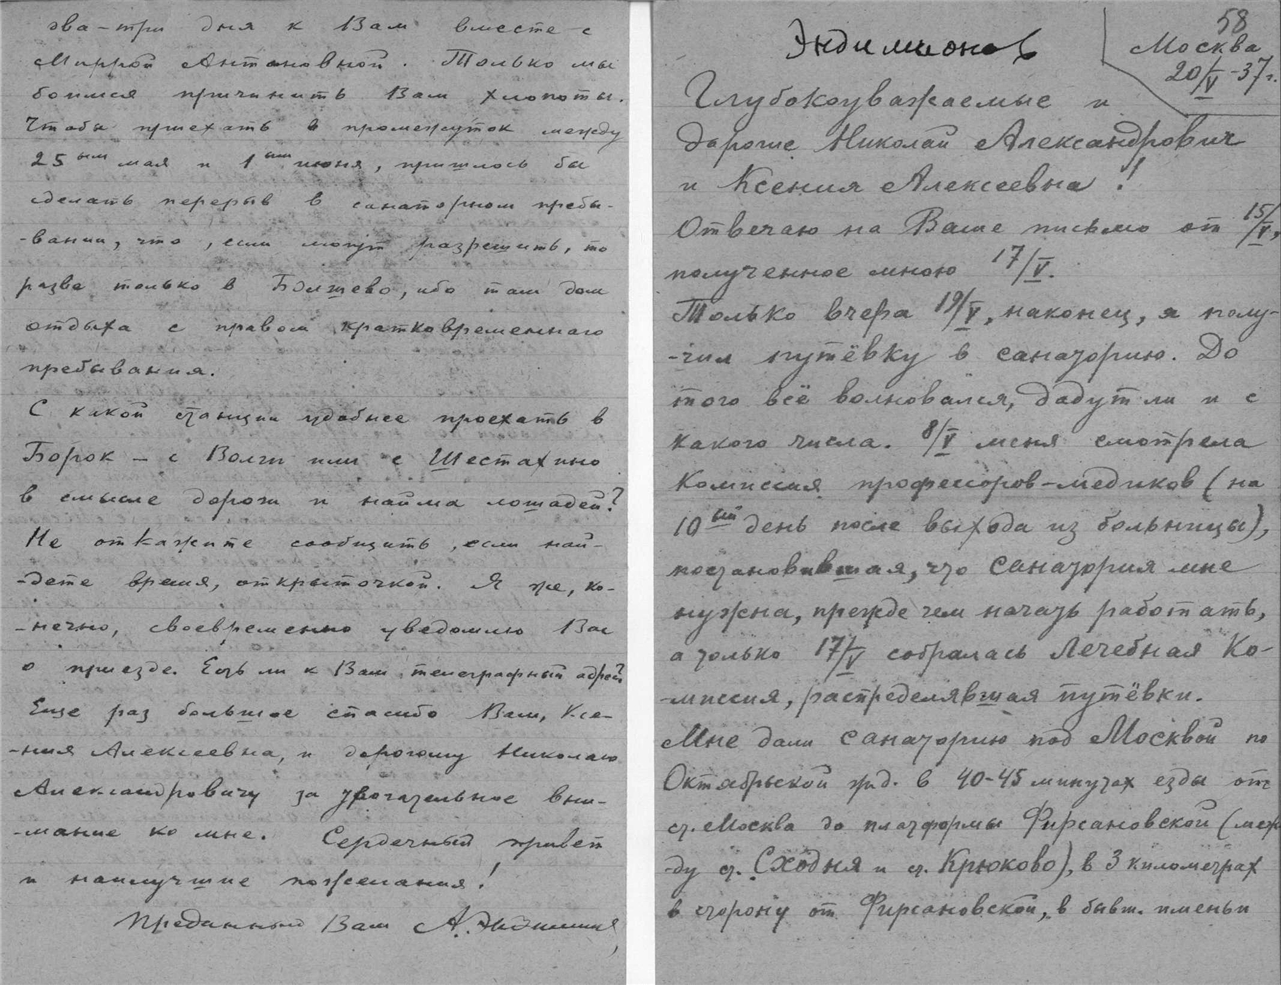 два-три дня к Вам вместе с
Миррой Антоновной. Только мы
боимся причинить Вам хлопоты.
Чтобы приехать в промежуток между
25ым мая и 1ым июня, пришлось бы
сделать перерыв в санаторном пребы-
-вании, что, если могут разрешить, то
разве только в Болшево, ибо там дом
отдыха с правом кратковременного
пребывания.
С какой станции удобнее проехать в
Борок – с Волги или с Шестихино
в смысле дороги и найма лошадей?
Не откажите сообщить, если най-
-дете время, открыточкой. Я же, ко-
-нечно, своевременно уведомлю Вас
о приезде. Есть ли к Вам телеграфный адрес?
Еще раз большое спасибо Вам, Ксе-
-ния Алексеевна, и дорогому Николаю
Александровичу за трогательное вни-
-мание ко мне. Сердечный привет
и наилучшие пожелания!
Преданный Вам А. Эндимионов
58
Эндимионов
Москва
20/V-37г.
Глубокоуважаемые и
дорогие Николай Александрович
и Ксения Алексеевна!
Отвечаю на Ваше письмо от 15/V,
полученное мною 17/V.
Только вчера 19/V, наконец, я полу-
-чил путёвку в санаторию. До
того всё волновался, дадут ли и с
какого числа. 8/V меня смотрела
Комиссия профессоров-медиков (на
10ый день после выхода из больницы),
постановившая, что санатория мне
нужна, прежде чем начать работать,
а только 17/V собралась Лечебная Ко-
-миссия, распределявшая путёвки.
Мне дали санаторию под Москвой по
Октябрьской жд. в 40-45 минутах езды от
ст. Москва до платформы Фирсановской (меж-
-ду ст. Сходня и ст. Крюково), в 3 километрах
в сторону от Фирсановской, в бывш. имении